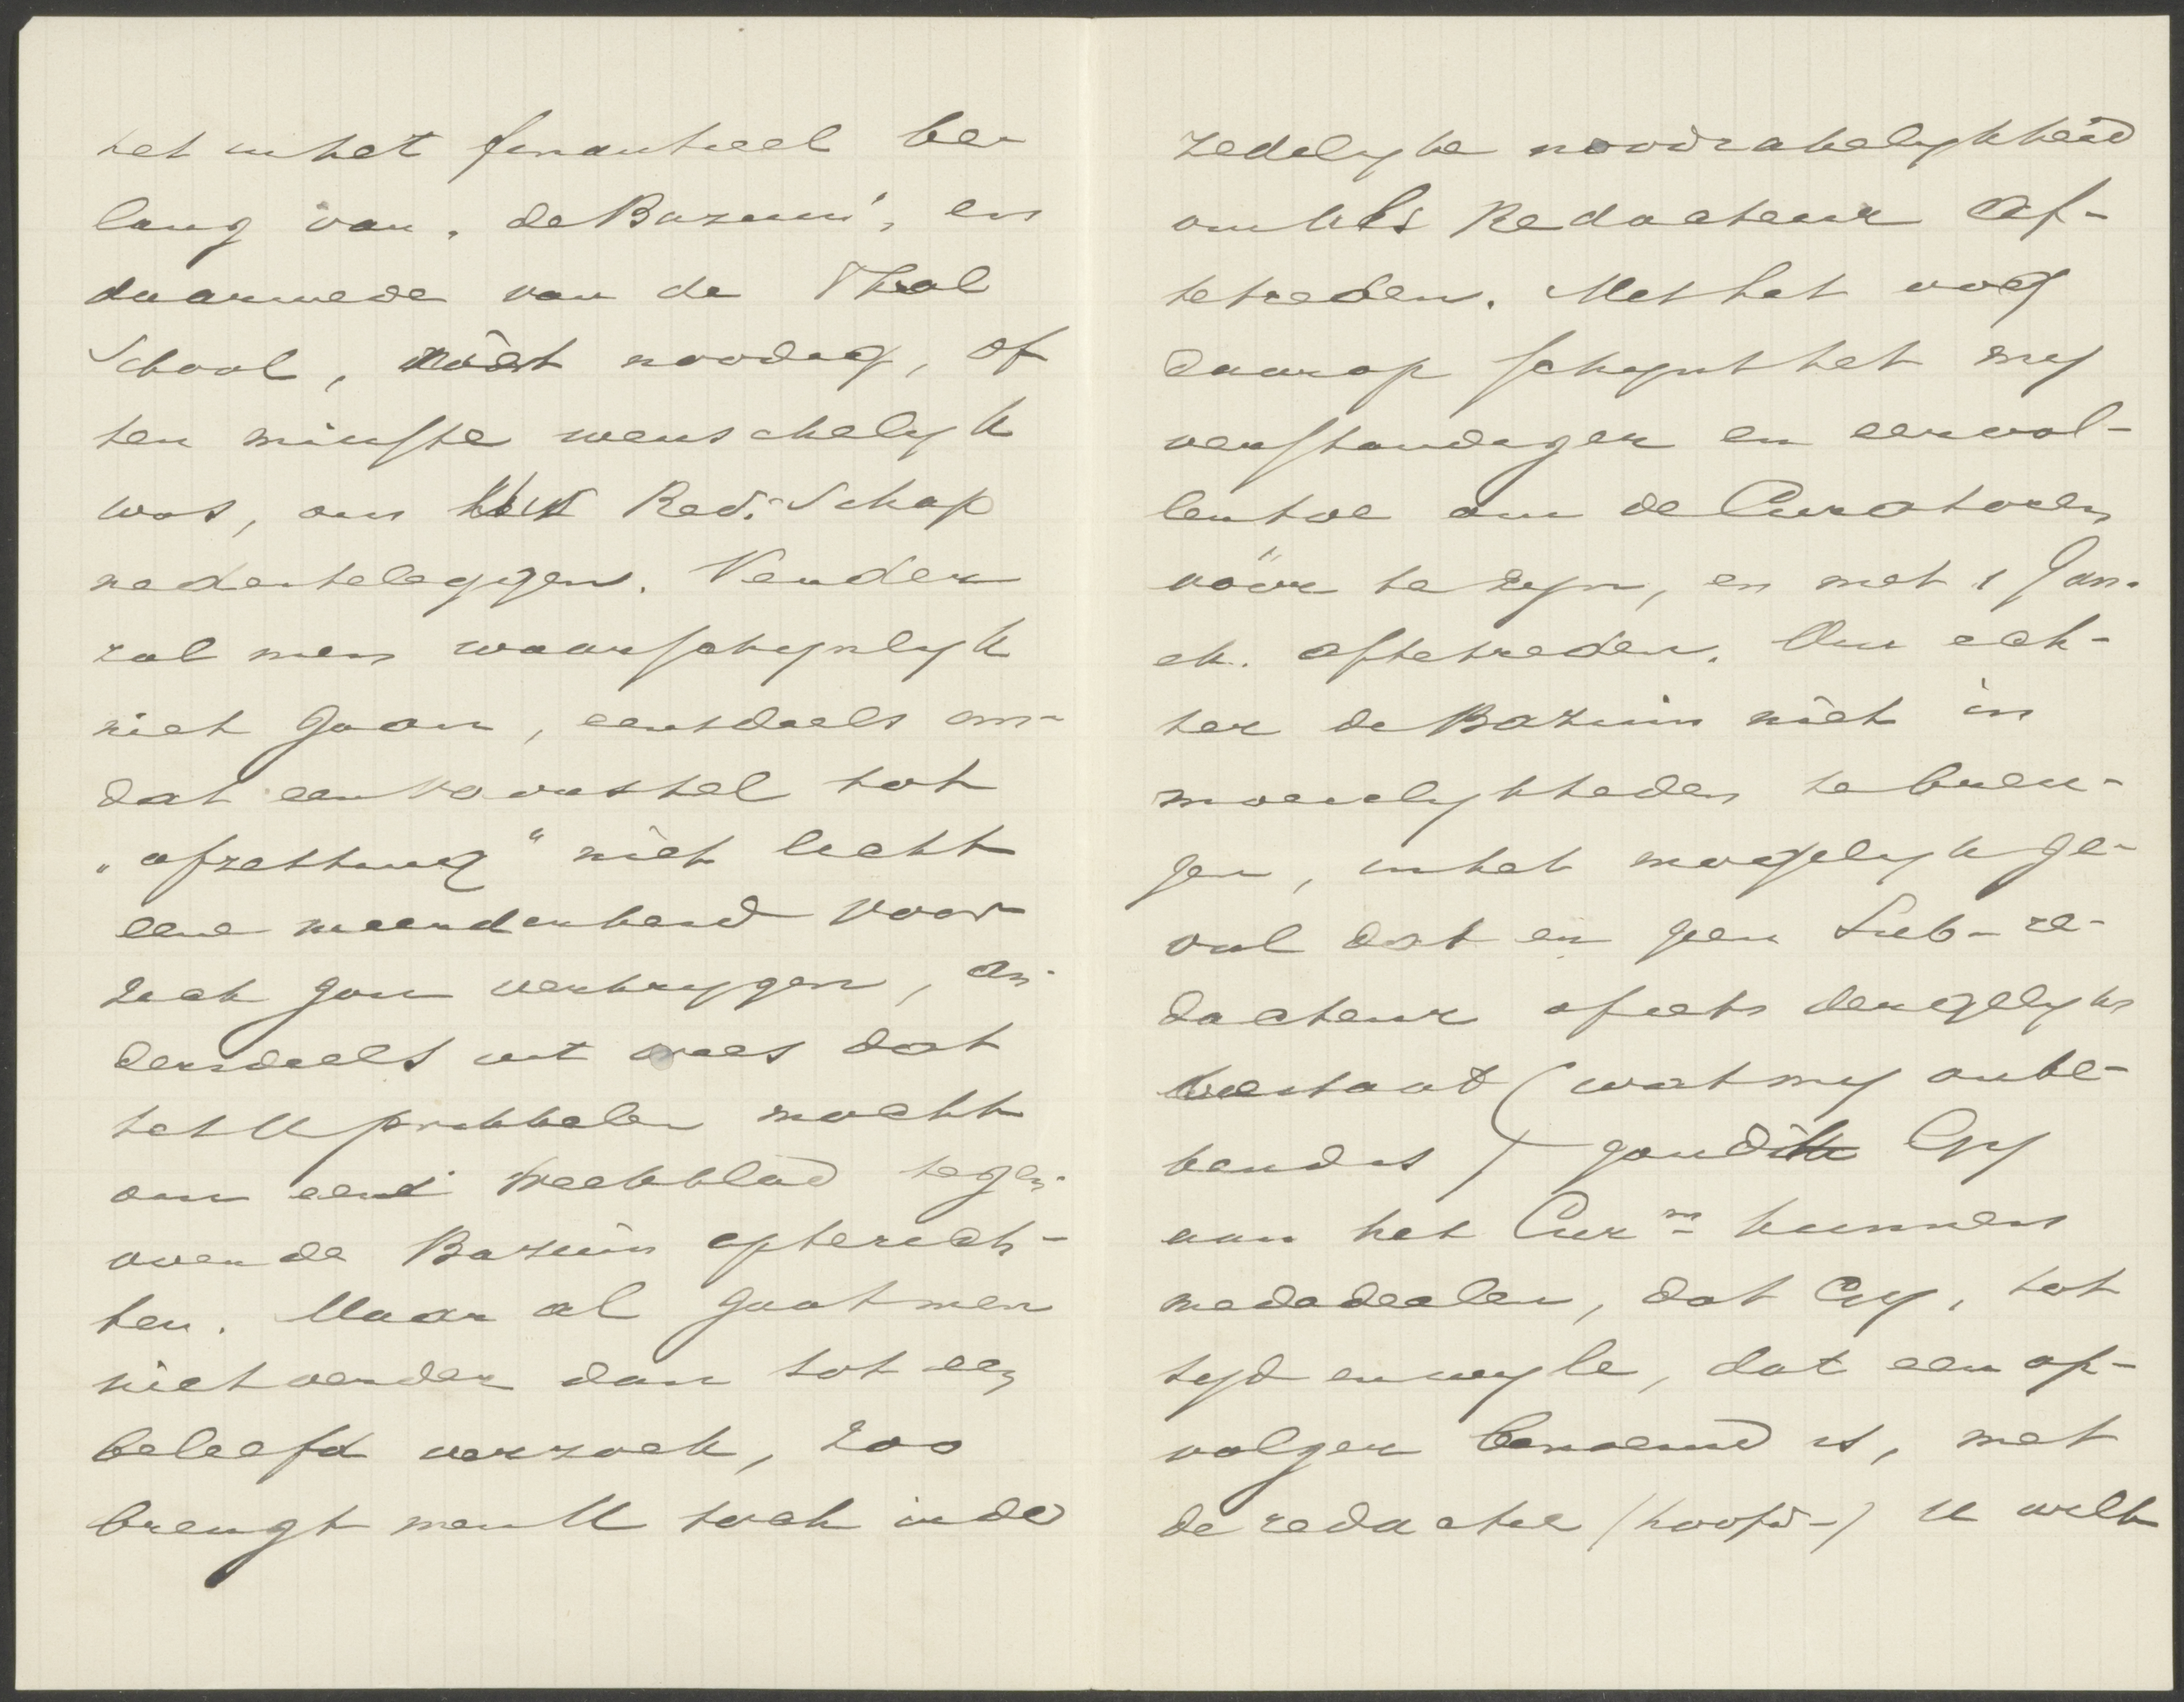 het in het finantieel be-
lang van „de Bazuin", en
daarmede van de Theol
School, niet noodig, of
ten minste wenschelijk
was, om Red. Schap
nederteleggen. Verder
zal men waarschijnlijk
niet gaan, eensdeels om-
dat een voorstel tot
„afzetting" niet licht
eene meerderheid voor
zich zou verkrijgen, an-
derdeels uit vrees dat
het U prikkelen mocht
om een weekblad tegen-
over de Bazuin opterich-
ten. Maar al gaat men
niet verder dan tot een
beleefd verzoek, zoo
brengt men U toch in de
zedelijke noodzakelijkheid
om als Redacteur af-
tetreden. Met het oog
daarop schijnt het mij
verstandiger en eervol-
ler toe om de Curatoren
vóór te zijn, en met 1 Jan.
ek. aftetreden. Om ech-
ter de Bazuin niet in
moeielijkheden te bren-
gen, in het mogelijk ge-
val dat er geen Sub-re-
dacteur of iets dergelijks
bestaat (wat mij onbe-
kend is) zoudt Gij
aan het Cur.m kunnen
mededeelen, dat Gij, tot
tijd en wijle, dat een op-
volger benoemd is, met
de redactie (hoofd-) U wilt